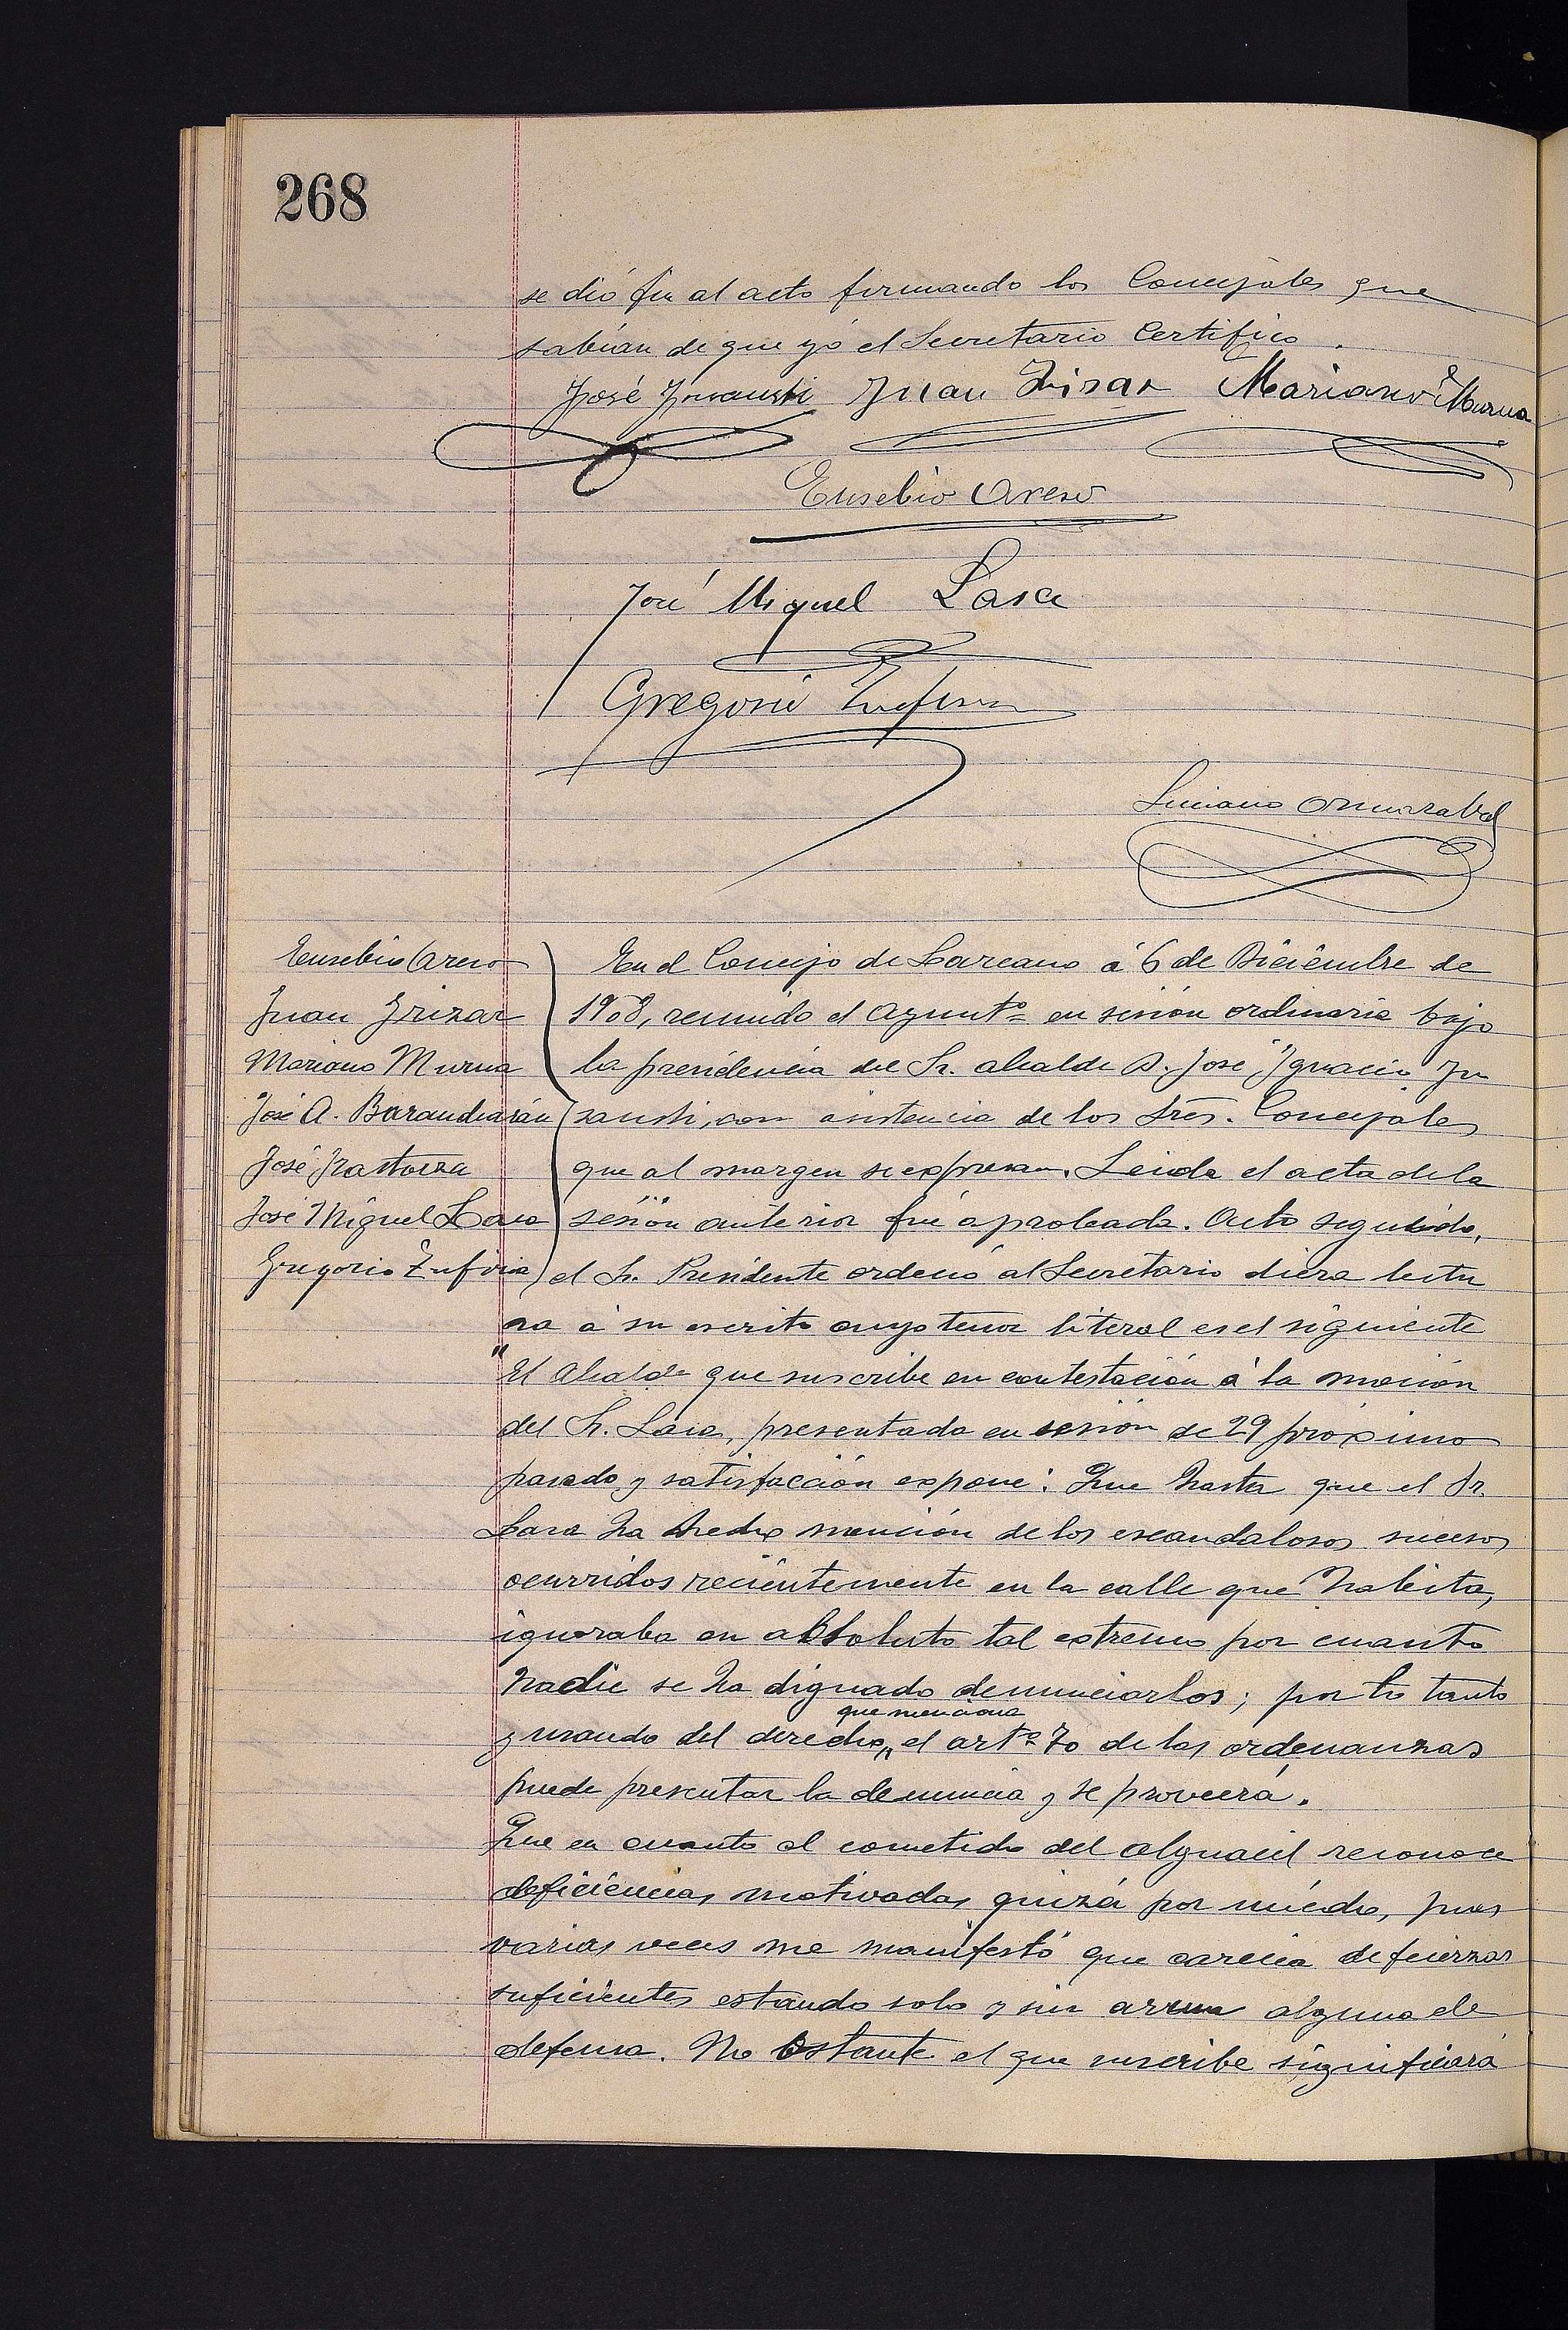 268
se dió fin al acto firmando los Concejales que
sabían de que yó el Secretario Certifico.
José Insausti Juan Irizar Mariano Murua
Eusebio Areso
José Miguel Lasa
Gregorio Zufiria
Luciano Ormazabal
Eusebio Areso
Juan Irizar
Mariano Murua
José A. Barandiarán
José Irastorza
José Miguel Lasa
Gregorio Zufiria
En el Concejo de Lazcano á 6 de Diciembre de
1908, reunido el Ayuntº en sesión ordinaria bajo
la presidencia del Sr. alcalde D. José Ignacio In
sausti, con asistencia de los Sres. Concejales
que al margen se expresan. Leida el acta de la
sesión anterior fué aprobada. Acto seguido,
el Sr. Presidente ordenó al Secretario diera lectu
ra á su escrito cuyo tenor literal es el siguiente
"El Alcalde que suscribe en contestación á la moción
del Sr. Lasa, presentada en sesión de 29 próximo
pasado y satisfacción expone: Que hasta que el Sr.
Lasa ha hecho mención de los escandalosos sucesos
ocurridos recientemente en la calle que habita,
ignoraba en absoluto tal extremo por cuanto
nadie se ha dignado denunciarlos; por lo tanto
que menciona
y usando del derecho, el artº 70 de las ordenanzas
puede presentar la denuncia y se proveerá.
Que en cuanto al cometido del alguacil reconoce
deficiencias motivadas quizá por miedo, pues
varias veces me manifestó que carecía de fuerzas
suficientes estando solo y sin arma alguna de
defensa. No Ostante el que suscribe significará